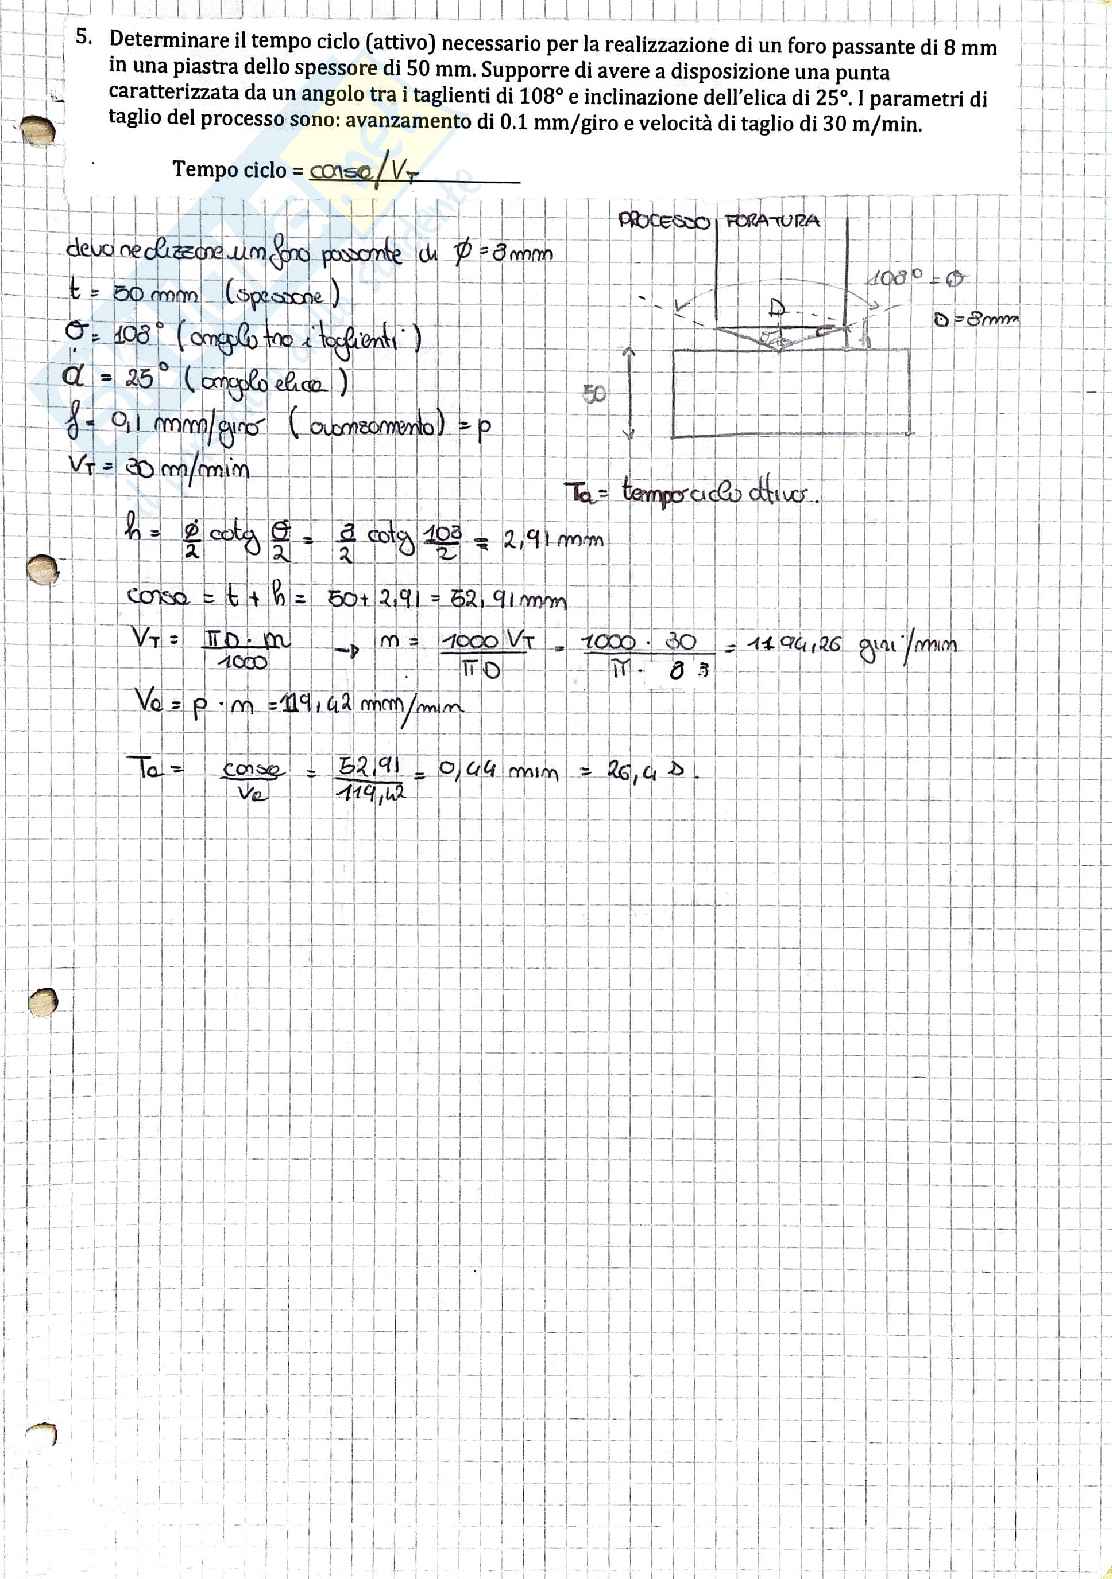 5. Determinare il tempo ciclo (attivo) necessario per la realizzazione di un foro passante di 8 mm
in una piastra dello spessore di 50 mm. Supporre di avere a disposizione una punta
caratterizzata da un angolo tra i taglienti di 108° e inclinazione dell'elica di 25°. I parametri di
taglio del processo sono: avanzamento di 0.1 mm/giro e velocità di taglio di 30 m/min.
Tempo ciclo = corsa/V_T
PROCESSO FORATURA
devo realizzare un foro passante di ϕ = 8mm
108° = θ
t = 50 mm (spessore)
D
D = 8mm
θ = 108° (angolo tra i taglienti)
h
α = 25° (angolo elica)
50
f = 0,1 mm/giro (avanzamento) = p
V_T = 30 m/min
Ta = tempo ciclo attivo..
h = ϕ/2 cotg θ/2 = 8/2 cotg 108/2 = 2,91 mm
corsa = t + h = 50 + 2,91 = 52,91 mm
V_T = πD · m/1000 → m = 1000 V_T/πD = 1000 · 30/π · 8 = 1194,26 giri/min
Va = p · m = 119,42 mm/min
Ta = corsa/Va = 52,91/119,42 = 0,44 min = 26,4 s.